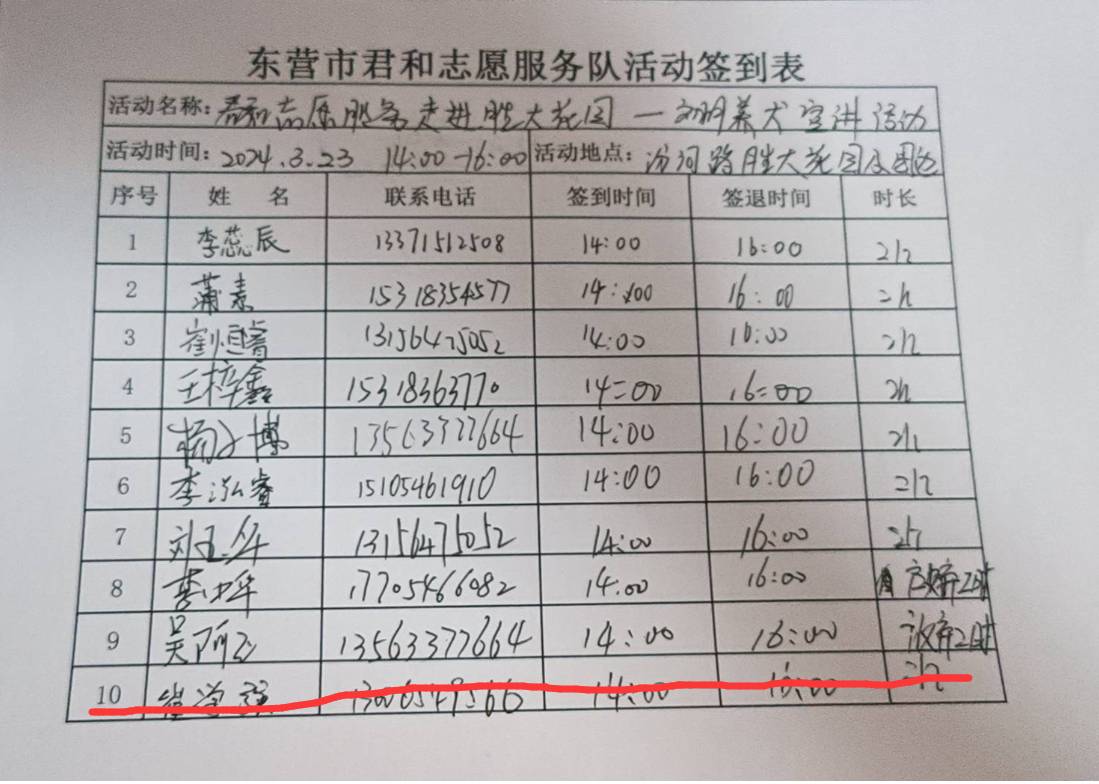 东营市君和志愿服务队活动签到表
活动名称：君和志愿服务走进胜大花园一文明养犬宣讲活动
活动时间：2024.3.23 14:00-16:00 活动地点：汾河路胜大花园及周边
序号 姓 名 联系电话 签到时间 签退时间 时长
1 李蕊辰 13371512508 14:00 16:00 2h
2 蒲素 15318354577 14:00 16:00 2h
3 崔恒睿 13156475052 14:00 16:00 2h
4 王梓鑫 15318363770 14:00 16:00 2h
5 杨子博 13563377664 14:00 16:00 2h
6 李泓睿 15105461910 14:00 16:00 2h
7 刘玉华 13156475052 14:00 16:00 2h
8 17705466082 14:00 16:00 放弃2时
9 吴丽 13563377664 14:00 16:00 放弃2时
10 崔学强 13006549566 14:00 16:00 2h